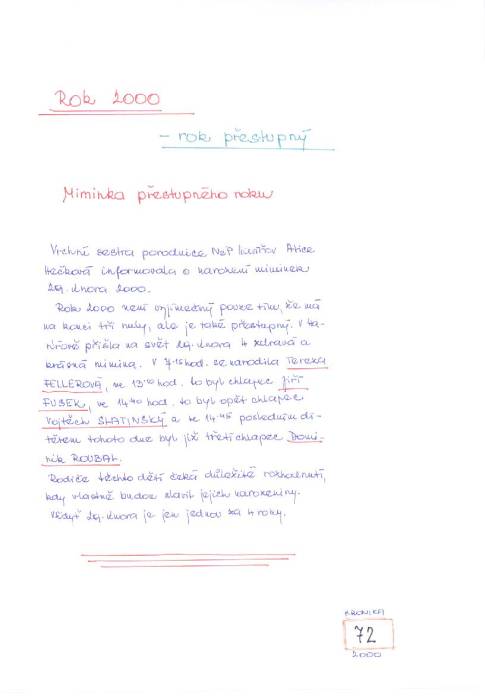 Rok 2000
- rok přestupný
Miminka přestupného roku
Vrchní sestra porodnice NsP Alice
informovala o narození miminek
29. února 2000.
Rok 2000 není výjimečný pouze tím, že má
na konci tři nuly, ale je také přestupný. V
přišla na svět 29. února 4 zdravá a
krásná mimina. V 7.15 hod. se narodila Tereza
FELLEROVÁ, ve 13.10 hod. to byl chlapec Jiří
FUSEK, ve 14.40 hod. to byl opět chlapec
Vojtěch SLATINSKÝ a ve 14.45 posledním dí-
tětem tohoto dne byl již třetí chlapec Domi-
nik ROUBAL.
Rodiče těchto dětí čeká důležité rozhodnutí,
kdy vlastně budou slavit jejich narozeniny.
Vždyť 29. února je jen jednou za 4 roky.
KRONIKA
72
2000